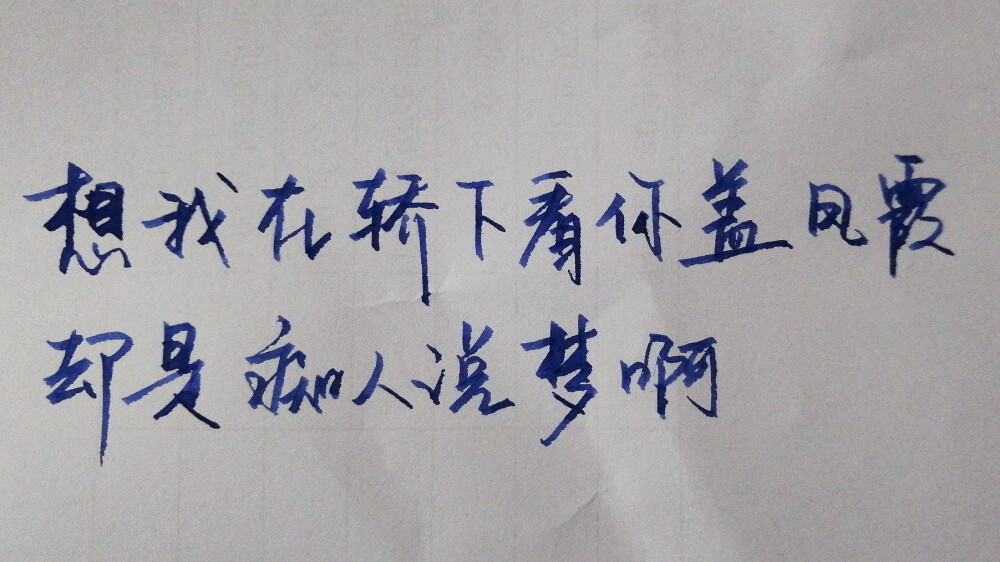 想我在轿下看你盖凤霞
却是痴人说梦啊